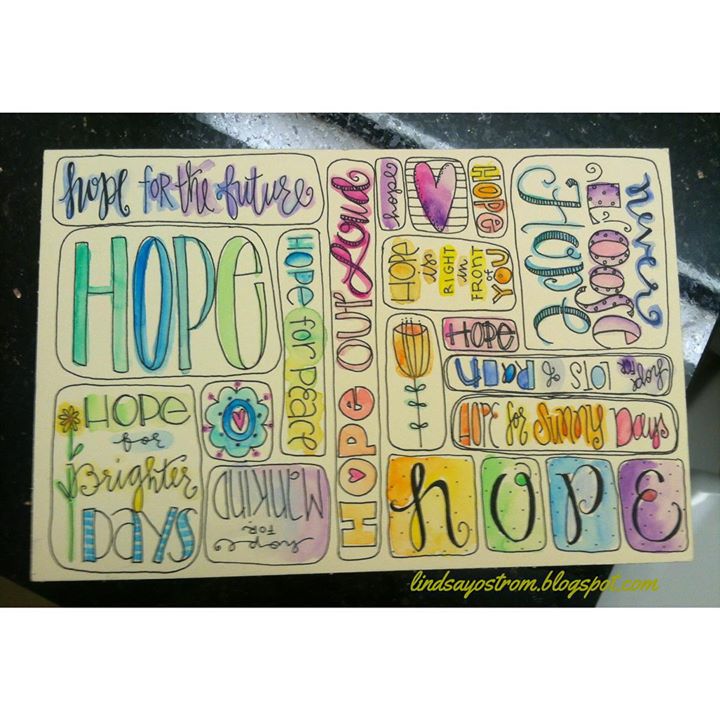 hope FOR THE future
HOPE
HOPE for PEACE
HOPE
for
Brighter
DAYS
hope
FOR
MANKIND
HOPE OUT Loud
hope
HOPE
HOPE
is
RIGHT
in
FRONT
of
YOU
never
LOOSE
Hope
HOPE
hope for LOTS of RAIN
HOPE for Sunny Days
hOPE
lindsayostrom.blogspot.com